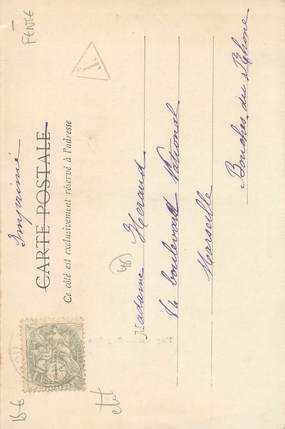 FENTE
Imprimé
CARTE POSTALE
Ce côté est exclusivement réservé à l'adresse
Madame Heraud
54 boulevard National
Marseille
Bouches du Rhône